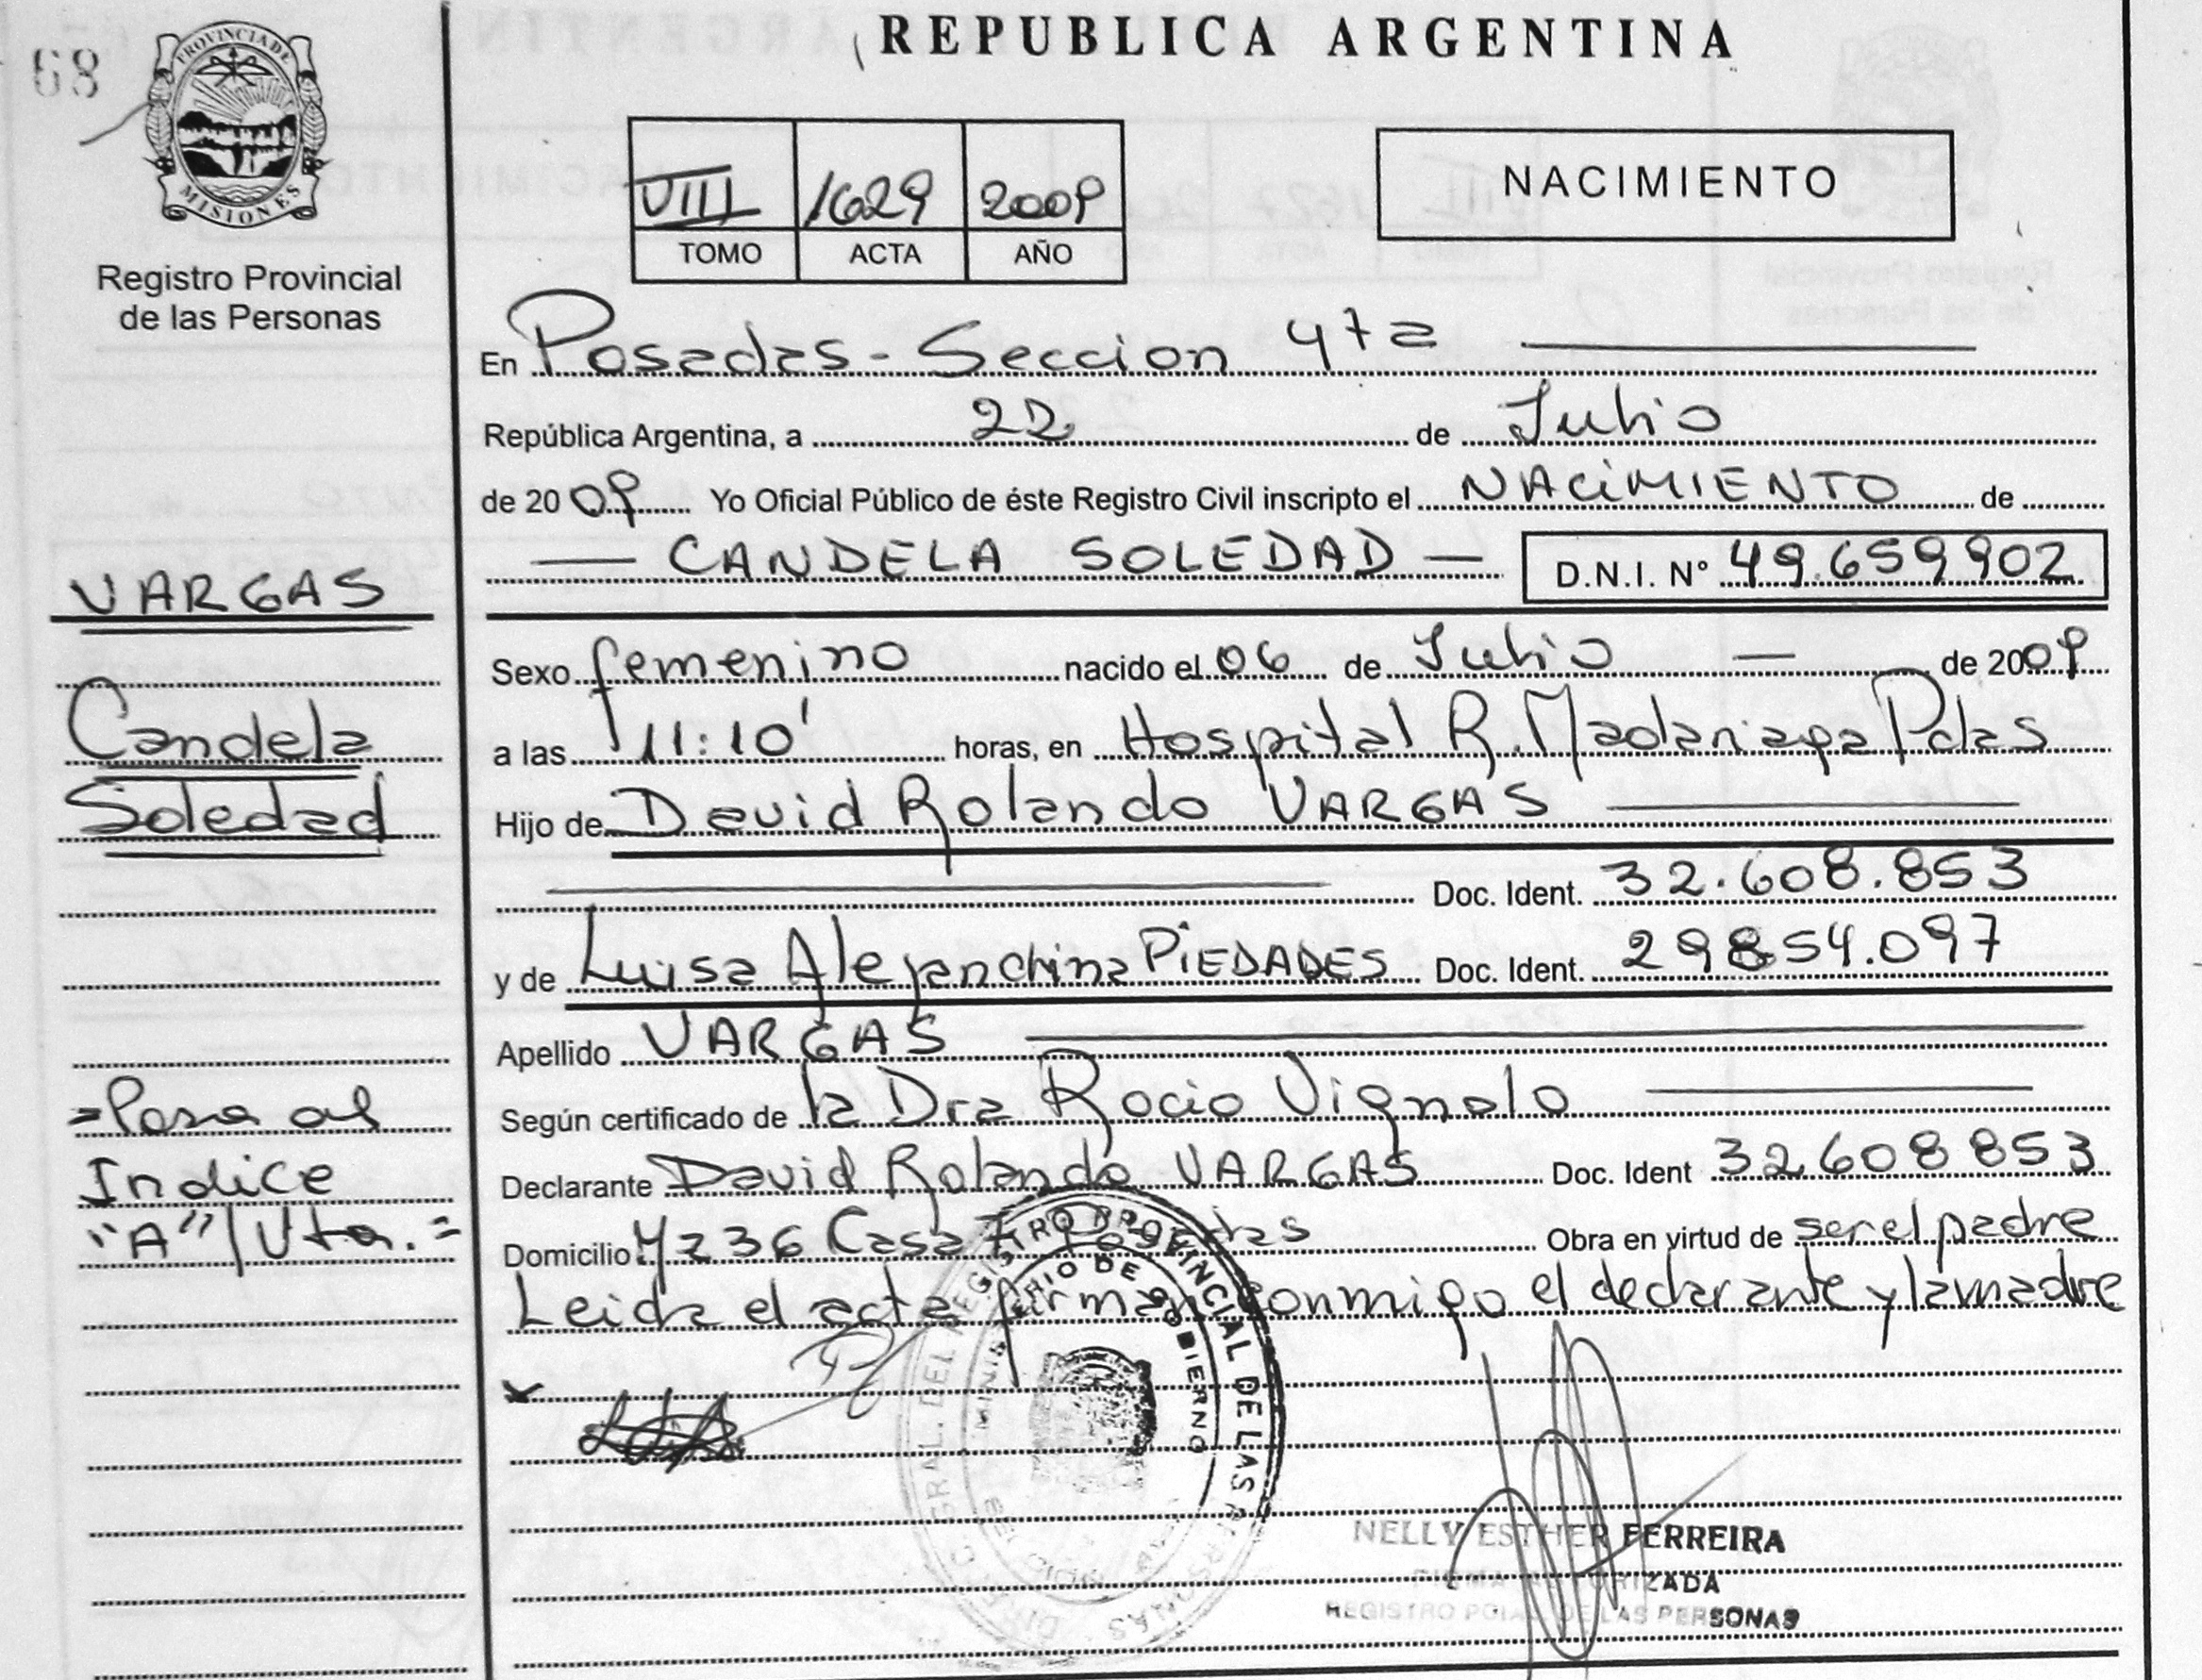 REPUBLICA ARGENTINA
68
PROVINCIA DE
MISIONES
Registro Provincial
de las Personas
VIII 1629 2009
TOMO ACTA AÑO
NACIMIENTO
En Posadas - Seccion 4ta
República Argentina, a 22 de Julio
de 20 09 Yo Oficial Público de éste Registro Civil inscripto el NACIMIENTO de
CANDELA SOLEDAD D.N.I. Nº 49.659902
VARGAS
Candela
Soledad
Sexo femenino nacido el 06 de Julio de 2009
a las 11:10' horas, en Hospital R. Madariaga Pdas
Hijo de David Rolando VARGAS
Doc. Ident. 32.608.853
y de Luisa Alejandrina PIEDADES Doc. Ident. 29854.097
Apellido VARGAS
Según certificado de la Dra Rocio Vignolo
Declarante David Rolando VARGAS Doc. Ident 32608853
Domicilio Mz 36 Casa 7 Posadas Obra en virtud de ser el padre
Leida el acta firman conmigo el declarante y la madre
=Pasa al
Indice
"A"/Vta.=
REGISTRO PROVINCIAL DE LAS PERSONAS
MINISTERIO DE GOBIERNO
NELLY ESTHER FERREIRA
FIRMA AUTORIZADA
REGISTRO PCIAL. DE LAS PERSONAS